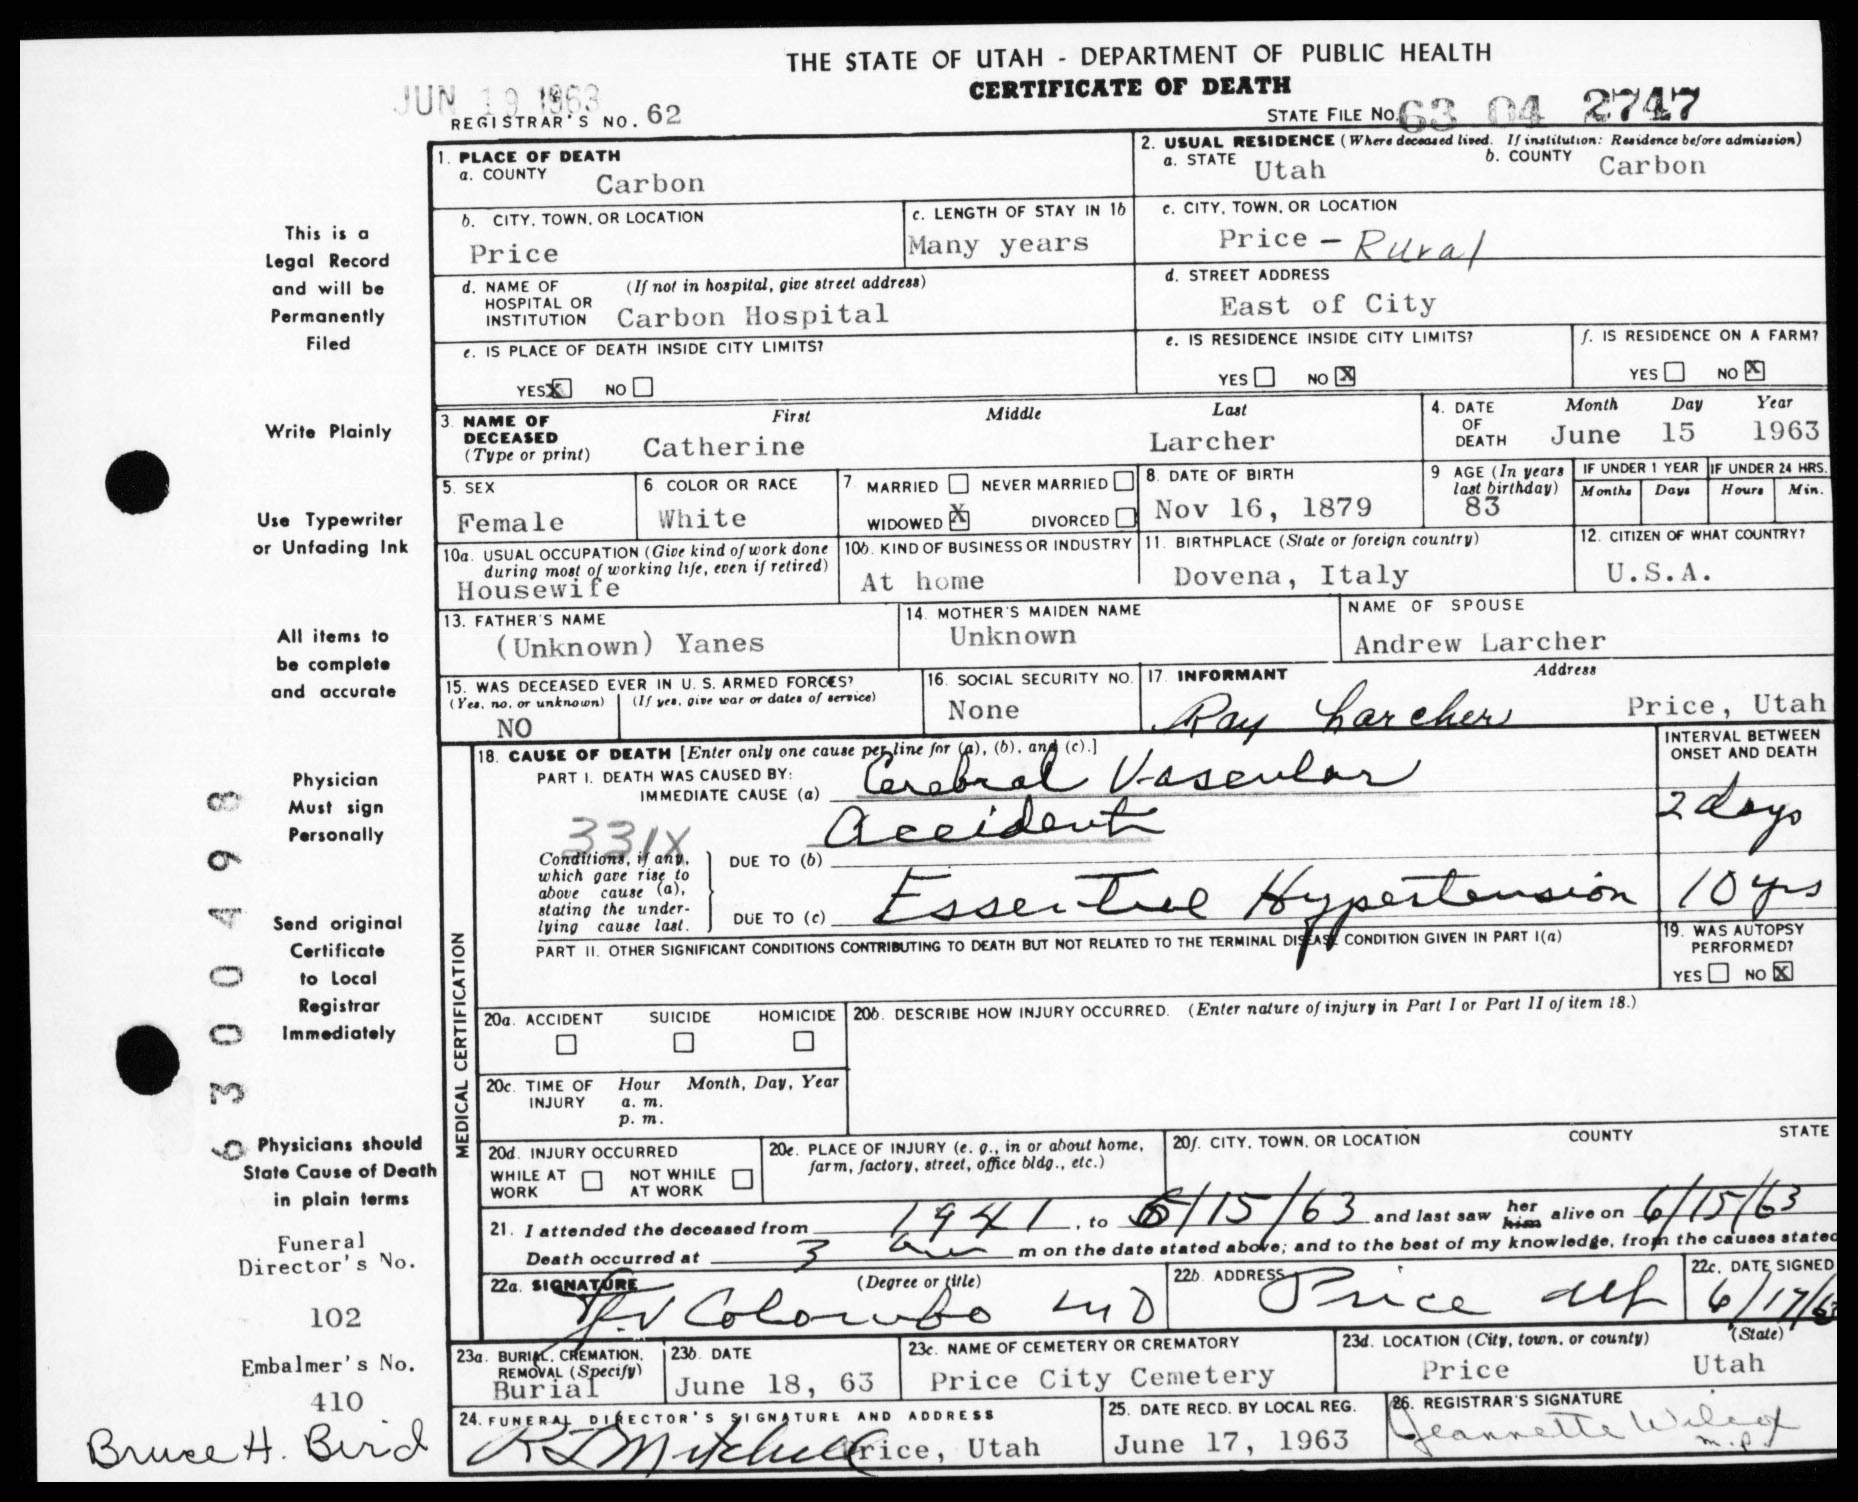 THE STATE OF UTAH - DEPARTMENT OF PUBLIC HEALTH
CERTIFICATE OF DEATH
JUN 19 1963
REGISTRAR'S NO. 62
STATE FILE NO. 63 04 2747
1. PLACE OF DEATH
a. COUNTY Carbon
2. USUAL RESIDENCE (Where deceased lived. If institution: Residence before admission)
a. STATE Utah b. COUNTY Carbon
b. CITY, TOWN, OR LOCATION
Price
c. LENGTH OF STAY IN 1b
Many years
c. CITY, TOWN, OR LOCATION
Price - Rural
d. NAME OF HOSPITAL OR INSTITUTION (If not in hospital, give street address)
Carbon Hospital
d. STREET ADDRESS
East of City
e. IS PLACE OF DEATH INSIDE CITY LIMITS?
YES X NO
e. IS RESIDENCE INSIDE CITY LIMITS?
YES NO X
f. IS RESIDENCE ON A FARM?
YES NO X
3. NAME OF DECEASED (Type or print)
First Middle Last
Catherine Larcher
4. DATE OF DEATH
Month Day Year
June 15 1963
5. SEX
Female
6. COLOR OR RACE
White
7. MARRIED NEVER MARRIED
WIDOWED X DIVORCED
8. DATE OF BIRTH
Nov 16, 1879
9 AGE (In years last birthday)
83
IF UNDER 1 YEAR
Months Days
IF UNDER 24 HRS.
Hours Min.
10a. USUAL OCCUPATION (Give kind of work done during most of working life, even if retired)
Housewife
10b. KIND OF BUSINESS OR INDUSTRY
At home
11. BIRTHPLACE (State or foreign country)
Dovena, Italy
12. CITIZEN OF WHAT COUNTRY?
U.S.A.
13. FATHER'S NAME
(Unknown) Yanes
14. MOTHER'S MAIDEN NAME
Unknown
NAME OF SPOUSE
Andrew Larcher
15. WAS DECEASED EVER IN U. S. ARMED FORCES?
(Yes, no, or unknown) (If yes, give war or dates of service)
NO
16. SOCIAL SECURITY NO.
None
17. INFORMANT Address
Ray Larcher Price, Utah
MEDICAL CERTIFICATION
18. CAUSE OF DEATH [Enter only one cause per line for (a), (b), and (c).]
INTERVAL BETWEEN ONSET AND DEATH
PART I. DEATH WAS CAUSED BY:
IMMEDIATE CAUSE (a) Cerebral Vascular
Accident
2 days
331X
Conditions, if any, which gave rise to above cause (a), stating the underlying cause last.
DUE TO (b)
DUE TO (c) Essential Hypertension
10 yrs
PART II. OTHER SIGNIFICANT CONDITIONS CONTRIBUTING TO DEATH BUT NOT RELATED TO THE TERMINAL DISEASE CONDITION GIVEN IN PART I(a)
19. WAS AUTOPSY PERFORMED?
YES NO X
20a. ACCIDENT SUICIDE HOMICIDE
20b. DESCRIBE HOW INJURY OCCURRED. (Enter nature of injury in Part I or Part II of item 18.)
20c. TIME OF INJURY
Hour Month, Day, Year
a. m.
p. m.
20d. INJURY OCCURRED
WHILE AT WORK NOT WHILE AT WORK
20e. PLACE OF INJURY (e. g., in or about home, farm, factory, street, office bldg., etc.)
20f. CITY, TOWN, OR LOCATION COUNTY STATE
21. I attended the deceased from 1941, to 6/15/63 and last saw her him alive on 6/15/63
Death occurred at 3 am m on the date stated above; and to the best of my knowledge, from the causes stated
22a. SIGNATURE (Degree or title)
Colombo MD
22b. ADDRESS
Price Ut
22c. DATE SIGNED
6/17/63
23a. BURIAL, CREMATION, REMOVAL (Specify)
Burial
23b. DATE
June 18, 63
23c. NAME OF CEMETERY OR CREMATORY
Price City Cemetery
23d. LOCATION (City, town, or county) (State)
Price Utah
24. FUNERAL DIRECTOR'S SIGNATURE AND ADDRESS
Mitchell Price, Utah
25. DATE RECD. BY LOCAL REG.
June 17, 1963
26. REGISTRAR'S SIGNATURE
Jeannette Wilcox
This is a
Legal Record
and will be
Permanently
Filed
Write Plainly
Use Typewriter
or Unfading Ink
All items to
be complete
and accurate
Physician
Must sign
Personally
Send original
Certificate
to Local
Registrar
Immediately
Physicians should
State Cause of Death
in plain terms
Funeral
Director's No.
102
Embalmer's No.
410
Bruce H. Bird
6300498